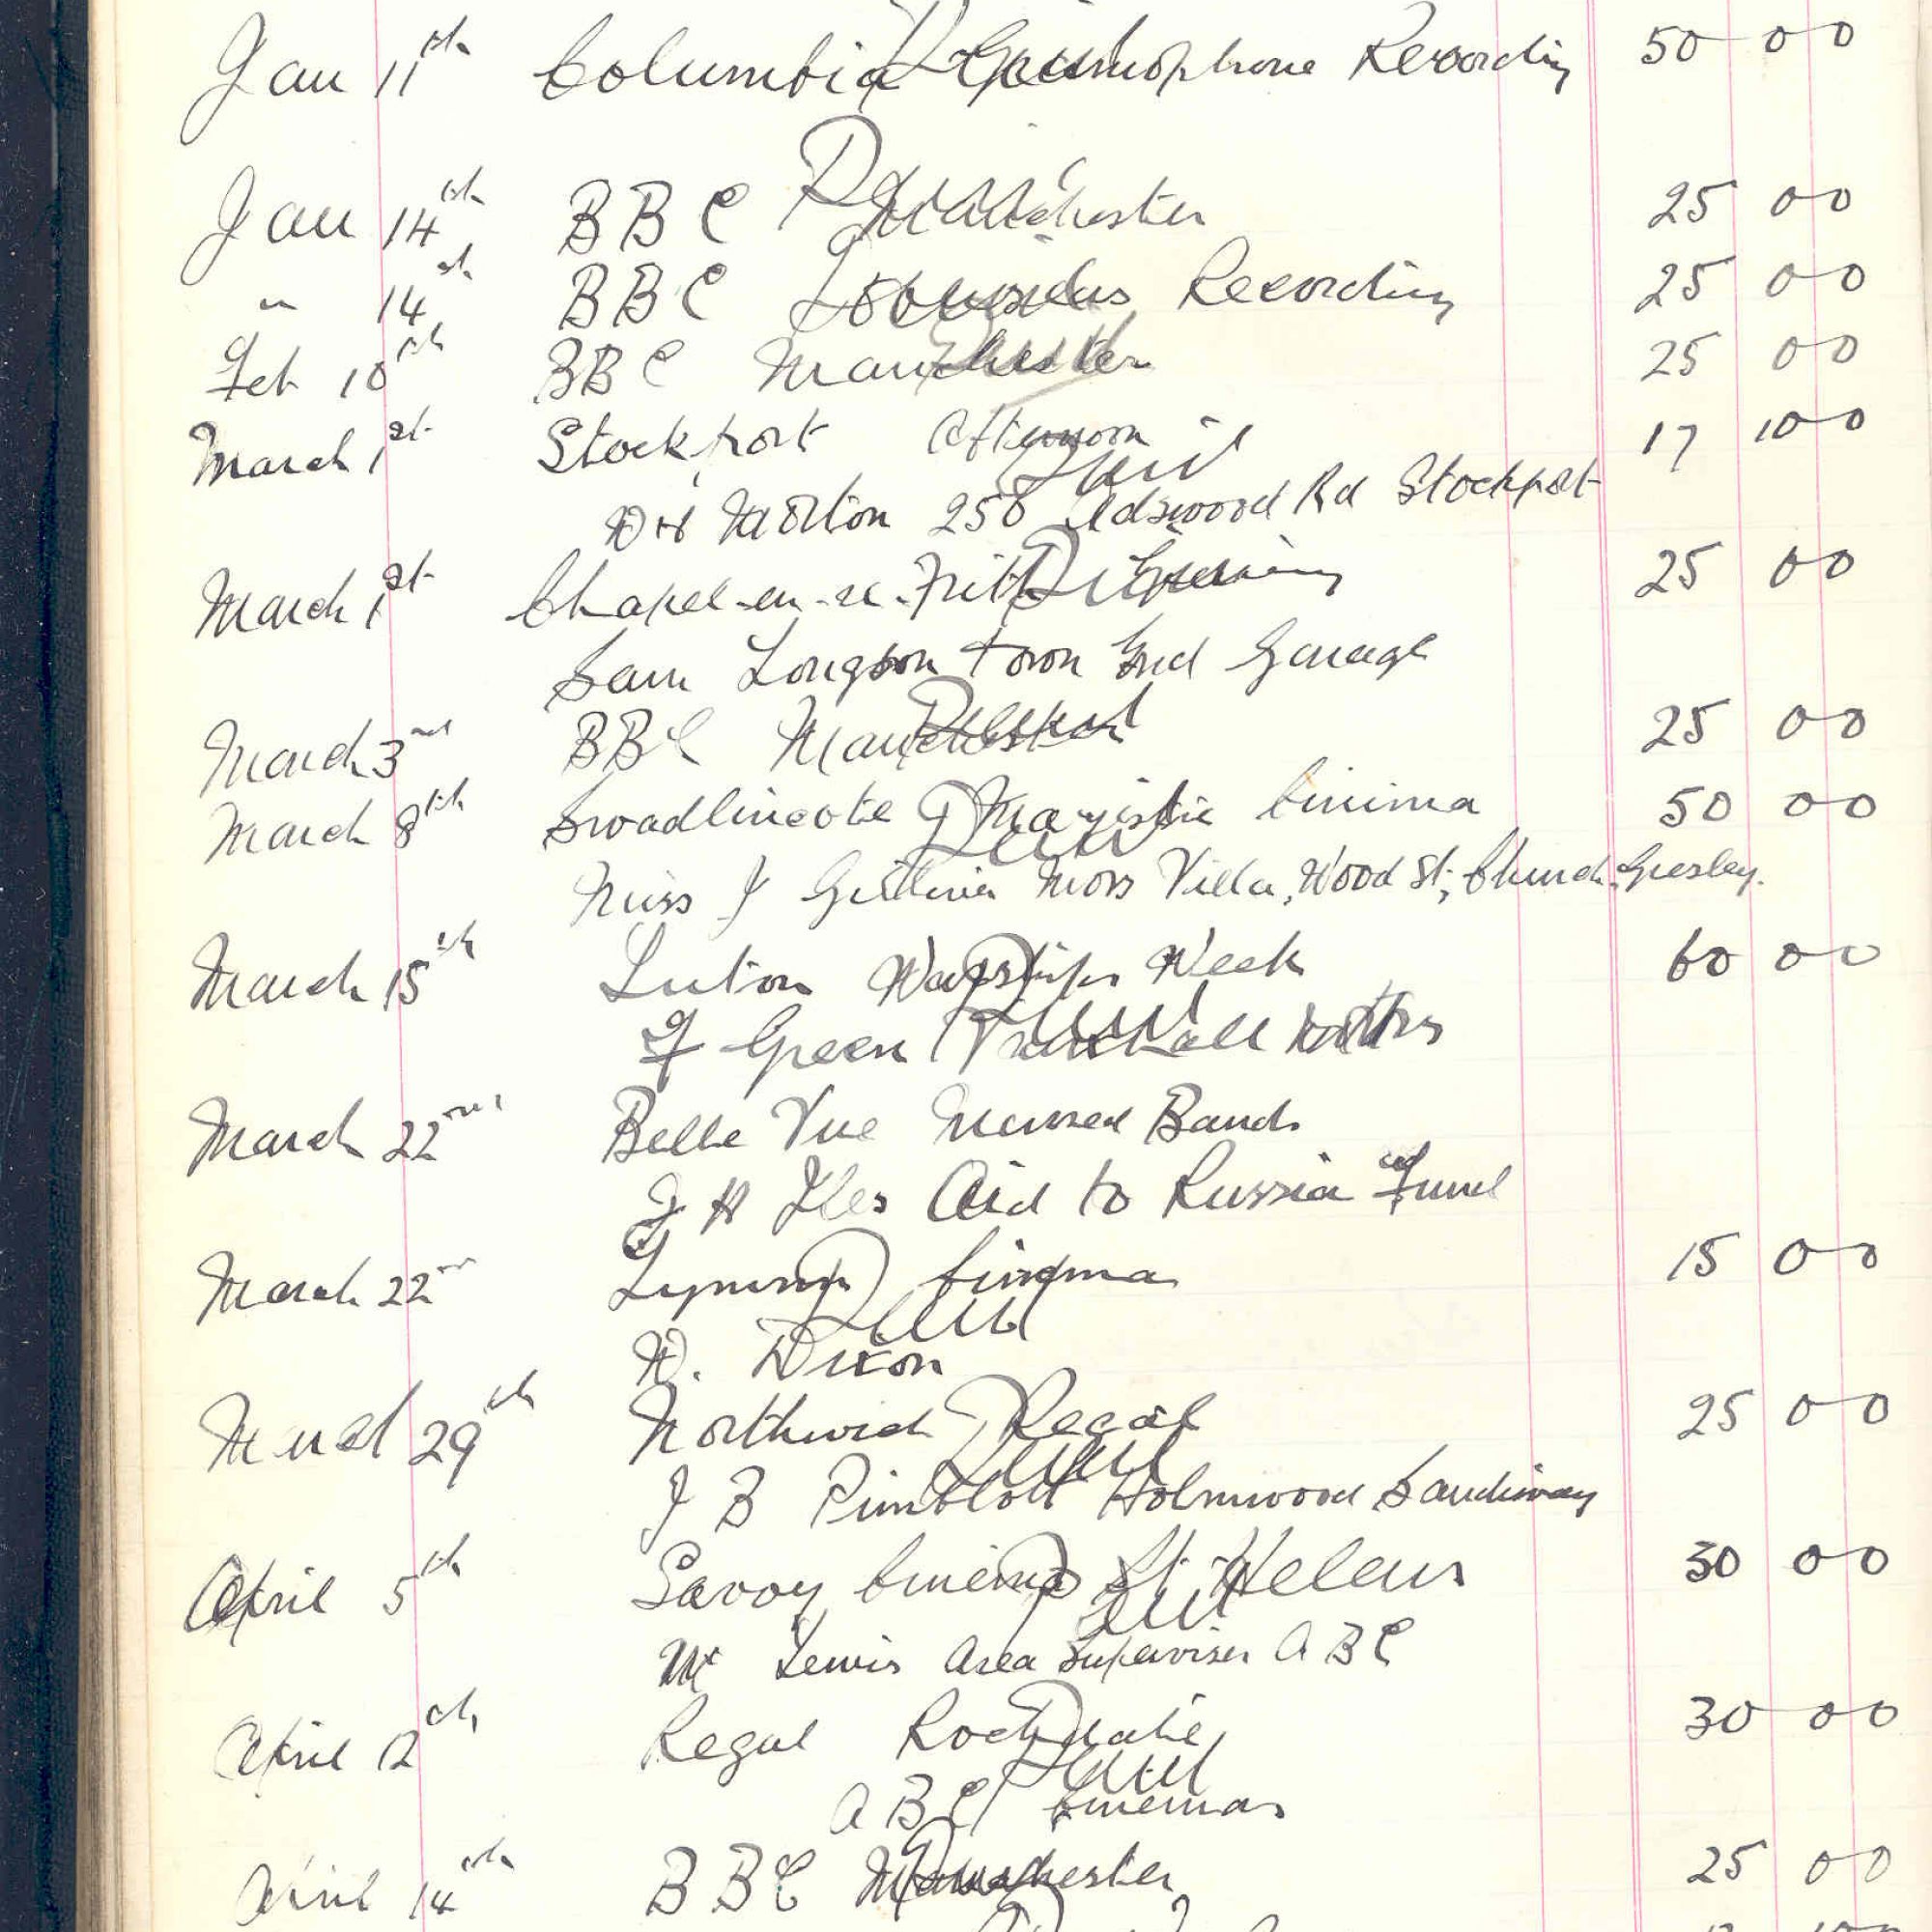 Jan 11th Columbia Gramophone Recording 50 0 0
Paid
Jan 14th BBC Manchester 25 0 0
Paid
" 14th BBC Overseas Recording 25 0 0
Feb 10th BBC Manchester 25 0 0
March 1st Stockport Afternoon 17 10 0
Paid
Morton 250 Adswood Rd Stockport
March 1st Chapel-en-le-Frith Evening 25 0 0
Paid
Sam Longson Town End Garage
March 3rd BBC Manchester 25 0 0
Paid
March 8th Swadlincote Majestic Cinima 50 0 0
Paid
Miss J Moss Villa, Wood St, Church Gresley.
March 15th Luton Warships Week 60 0 0
Paid
F Green Vauxhall Motors
March 22nd Belle Vue Massed Bands
J H Iles Aid to Russia Fund
March 22nd Lymm Cinema 15 0 0
Paid
W. Dixon
March 29th Northwich Regal 25 0 0
Paid
J B Pimblott Holmwood Sandiway
April 5th Savoy Cinema St Helens 30 0 0
Paid
Mr Lewis Area Superviser A B C
April 12th Regal Rochdale 30 0 0
Paid
A B C Cinemas
April 14th BBC Manchester 25 0 0